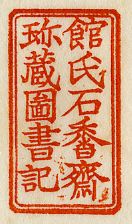 館氏石香齋
珎蔵圖書記